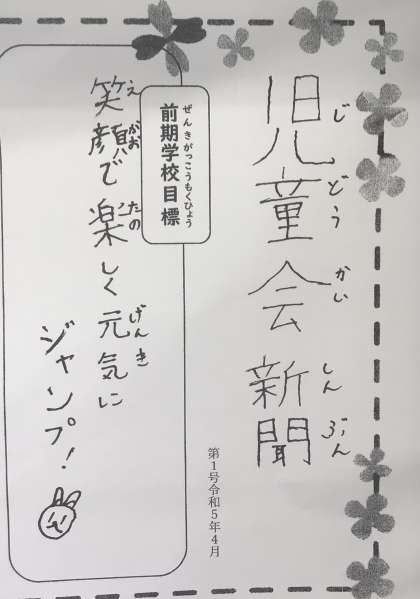 児童会新聞
じどうかいしんぶん
第1号令和5年4月
前期学校目標
ぜんきがっこうもくひょう
笑顔で楽しく元気に
えがおたのげんき
ジャンプ!